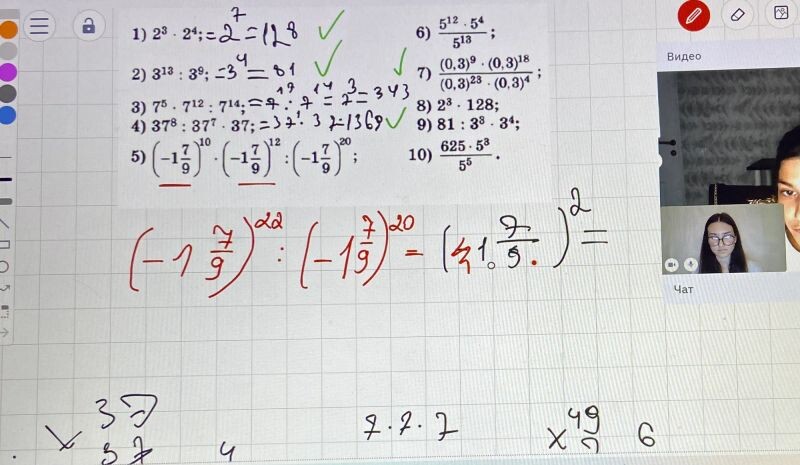 1) 2³ · 2⁴; = 2⁷ = 128
2) 3¹³ : 3⁹; = 3⁴ = 81
3) 7⁵ · 7¹² : 7¹⁴; = 7¹⁷ : 7¹⁴ = 7³ = 343
4) 37⁸ : 37⁷ · 37; = 37¹ · 37 = 1369
5) (−1 7/9)¹⁰ · (−1 7/9)¹² : (−1 7/9)²⁰;
6) 5¹² · 5⁴ / 5¹³ ;
7) (0,3)⁹ · (0,3)¹⁸ / (0,3)²³ · (0,3)⁴ ;
8) 2³ · 128;
9) 81 : 3⁸ · 3⁴;
10) 625 · 5³ / 5⁵ .
(−1 7/9)²² : (−1 7/9)²⁰ = ( 1 7/9 )² =
37
× 37
4
7 · 7 · 7
49
× 7
6
Видео
Чат